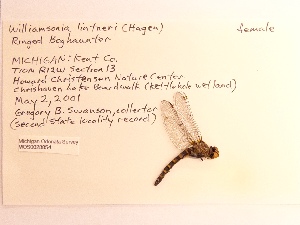 Williamsonia lintneri (Hagen) female
Ringed Boghaunter
MICHIGAN: Kent Co.
T10N R12W Section 13
Howard Christensen Nature Center
Chrishaven Lake Boardwalk (kettlehole wetland)
May 2, 2001
Gregory B. Swanson, collector
(second state locality record)
Michigan Odonata Survey